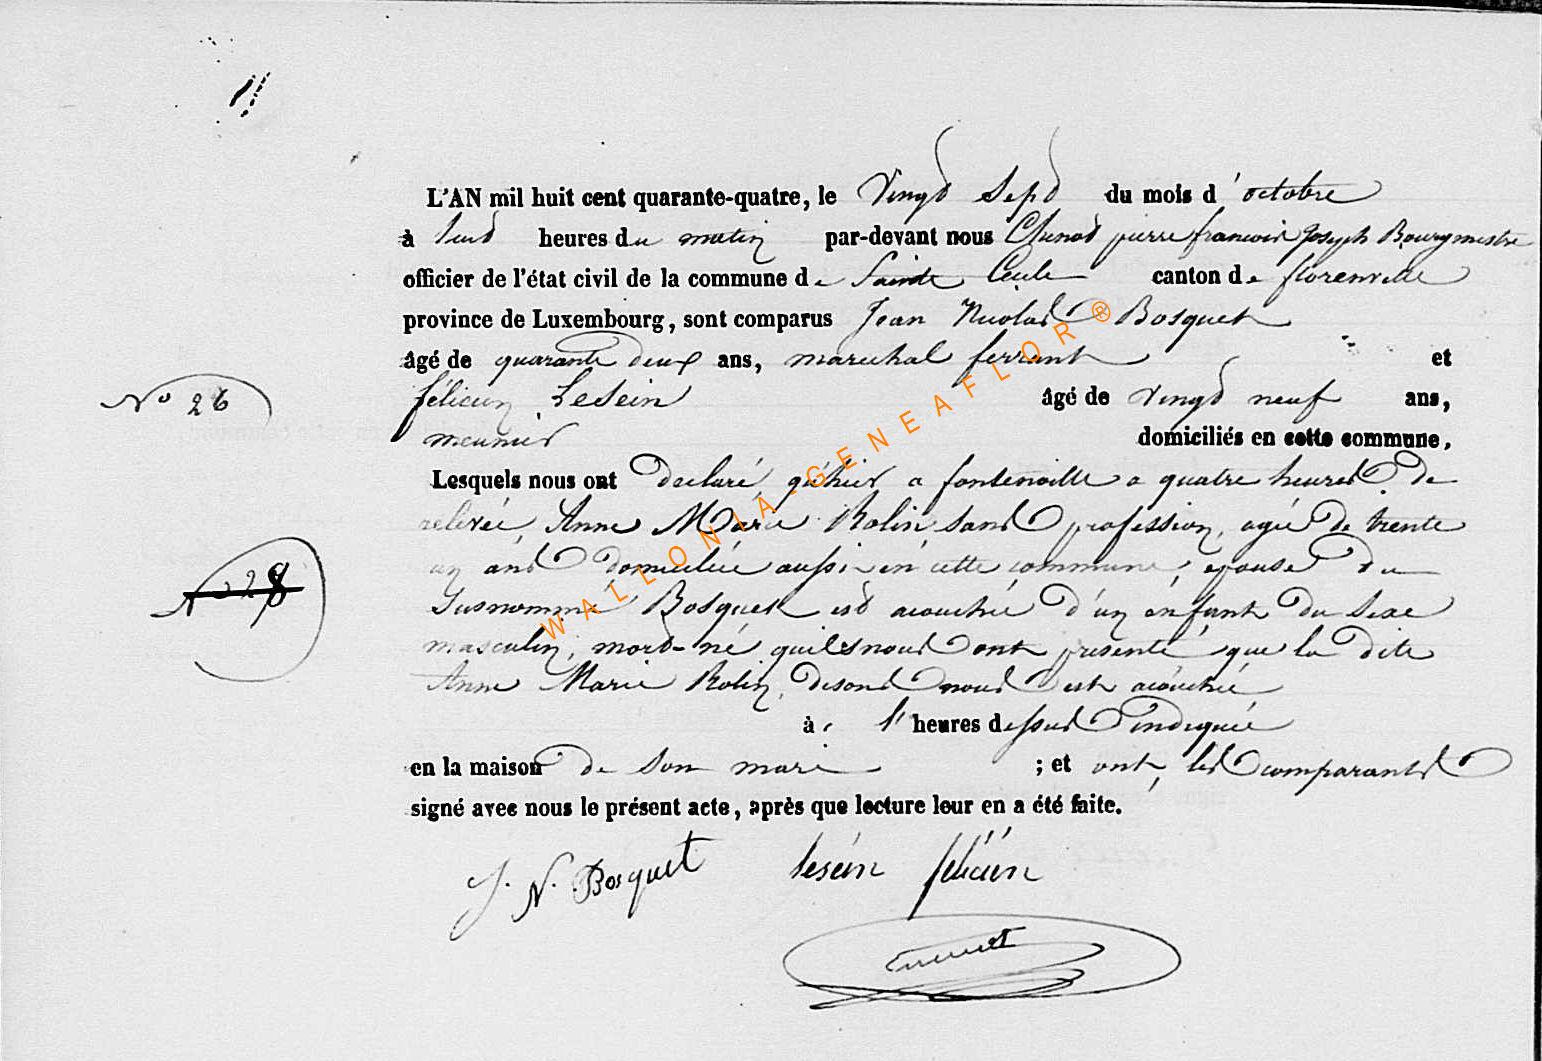 L'AN mil huit cent quarante-quatre, le Vingt Sept du mois d'octobre
à huit heures du matin par-devant nous pierre francois Joseph Bourgmestre
officier de l'état civil de la commune de Sainte Cecile canton de florenville
province de Luxembourg, sont comparus Jean Nicolas Bosquet
âgé de quarante deux ans, marechal ferrant et
félicien Lesein âgé de Vingt neuf ans,
No 26
meunier domiciliés en cette commune,
Lesquels nous ont declaré, qu'hier a fontenoille a quatre heures de
relevée, Anne Marie Rolin, sans profession, agée de trente
un ans domiciliée aussi en cette commune, epouse du
Susnommé Bosquet est acouchée d'un enfant du sexe
masculin, mort-né quils nous ont presenté que la dite
Anne Marie Rolin, disons nous est acouchée
à l'heures dessus indiquée
en la maison de son mari ; et ont, les comparants
signé avec nous le présent acte, après que lecture leur en a été faite.
J. N. Bosquet lesein félicien
WALLONIA-GENEAFLOR®